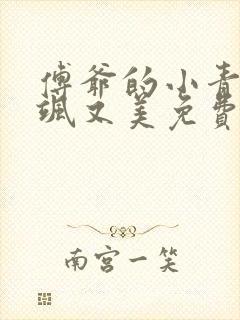 傅爷的小青
飒又美免費
南宫一笑